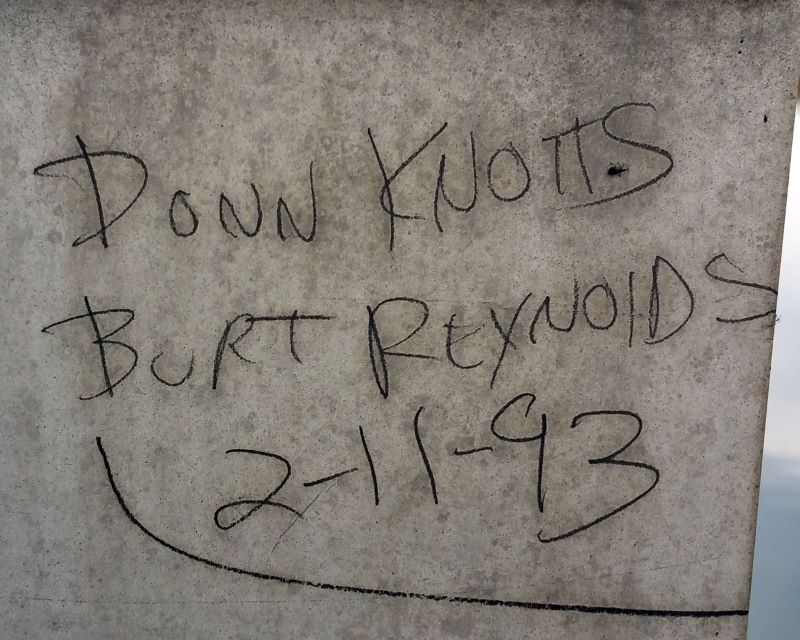 DONN KNOTTS
BURT REYNOLDS
2-11-93